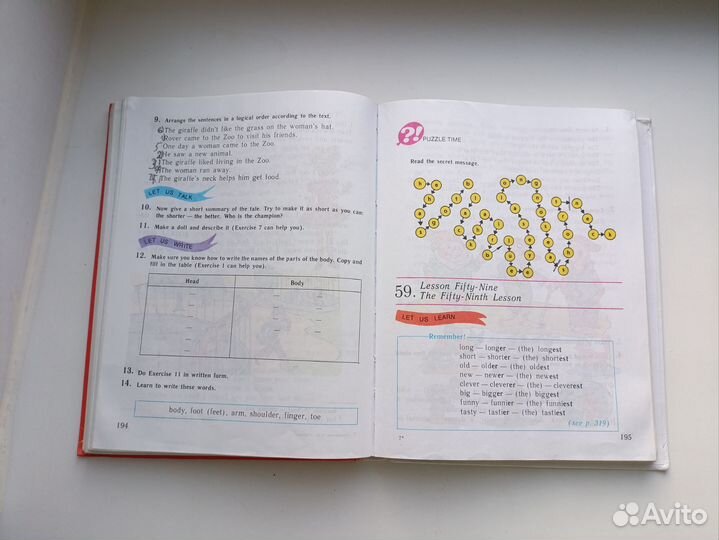 9. Arrange the sentences in a logical order according to the text.
The giraffe didn't like the grass on the woman's hat.
Rover came to the Zoo to visit his friends.
One day a woman came to the Zoo.
He saw a new animal.
The giraffe liked living in the Zoo.
The woman ran away.
The giraffe's neck helps him get food.
LET US TALK
10. Now give a short summary of the tale. Try to make it as short as you can
the shorter — the better. Who is the champion?
11. Make a doll and describe it (Exercise 7 can help you).
LET US WRITE
12. Make sure you know how to write the names of the parts of the body. Copy and
fill in the table (Exercise 1 can help you).
Head Body
13. Do Exercise 11 in written form.
14. Learn to write these words.
body, foot (feet), arm, shoulder, finger, toe
194
?!
PUZZLE TIME
Read the secret message.
59. Lesson Fifty-Nine
The Fifty-Ninth Lesson
LET US LEARN
Remember!
long — longer — (the) longest
short — shorter — (the) shortest
old — older — (the) oldest
new — newer — (the) newest
clever — cleverer — (the) — cleverest
big — bigger — (the) biggest
funny — funnier — (the) funniest
tasty — tastier — (the) tastiest
(see p. 319)
7*
195
Avito